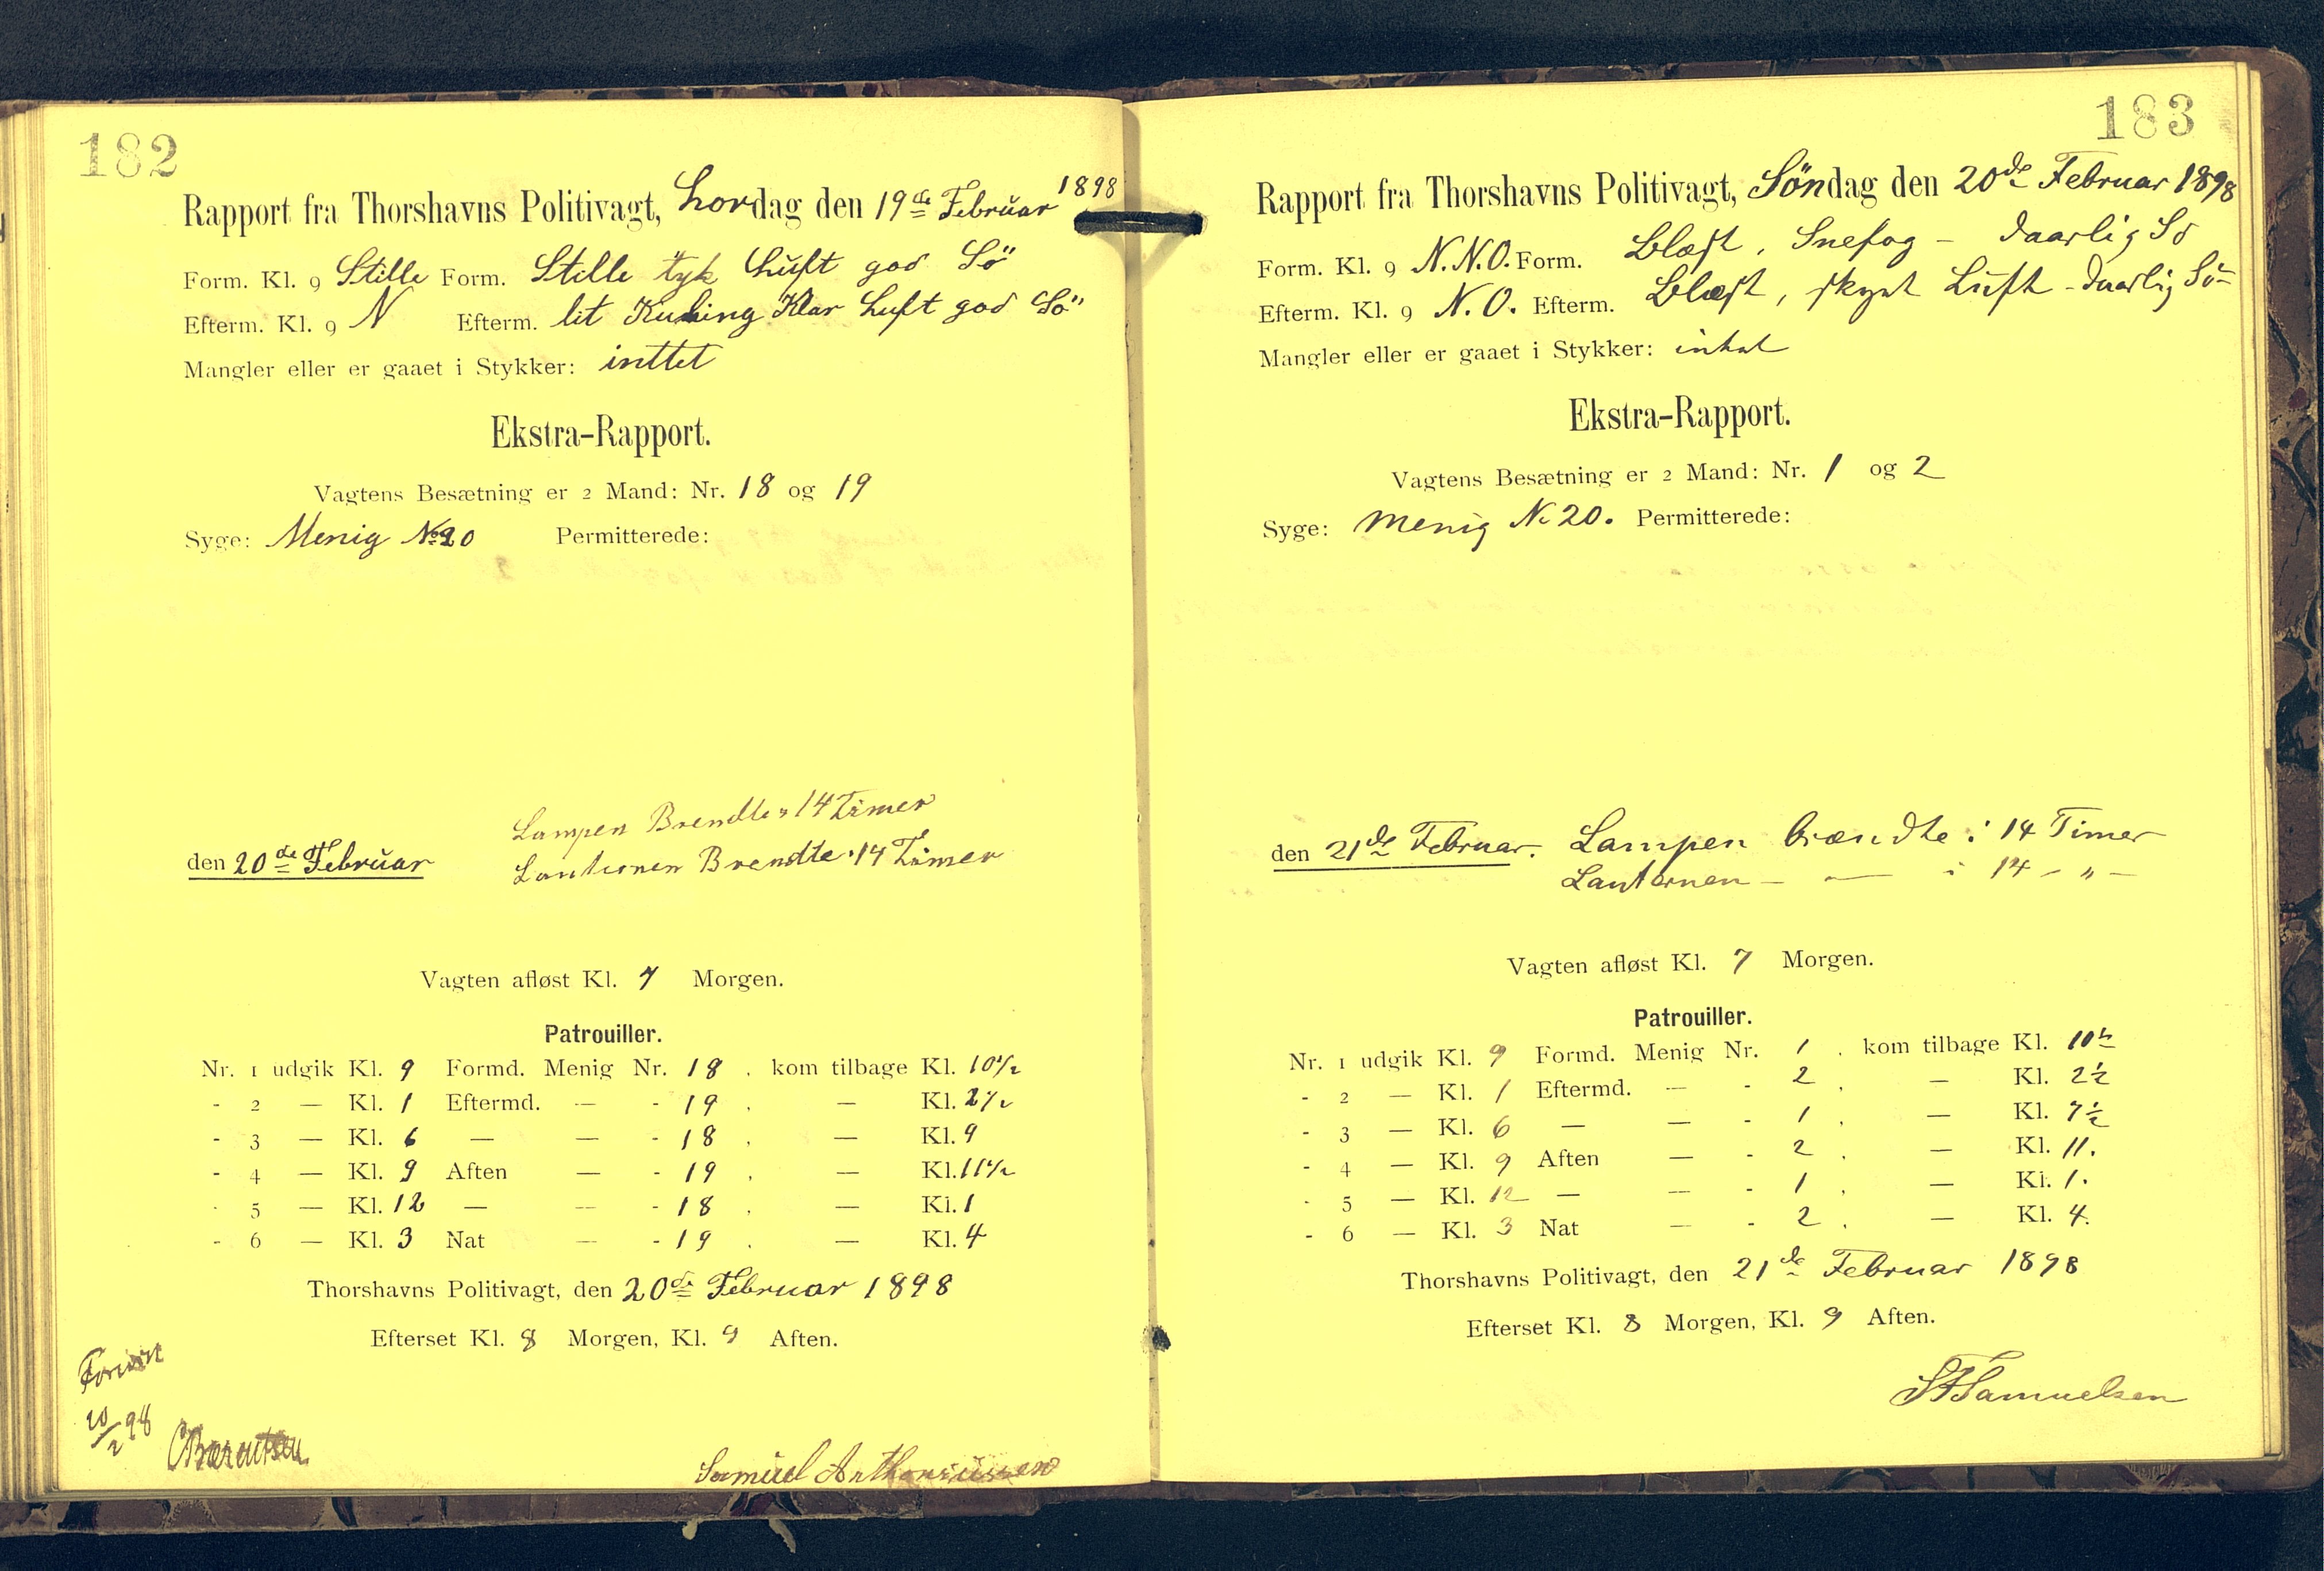 182
Rapport fra Thorshavns Politivagt, Lordag den 19de Februar 1898
Form. Kl. 9 Stille Form. Stille tyk Luft god Sö
Efterm. Kl. 9 N Efterm. lit Kuling Klar Luft god Sö
Mangler eller er gaaet i Stykker: inttet
Ekstra-Rapport.
Vagtens Besætning er 2 Mand: Nr. 18 og 19
Syge: Menig No 20 Permitterede:
Lampen Brendte 14 Timer
den 20de Februar
Lanternen Brendte 14 Timer
Vagten afløst Kl. 7 Morgen.
Patrouiller.
Nr. 1 udgik Kl. 9 Formd. Menig Nr. 18 . kom tilbage Kl. 10 1/2
- 2 — Kl. 1 Eftermd. — - 19 . — Kl. 2 1/2
- 3 — Kl. 6 — — - 18 . — Kl. 9
- 4 — Kl. 9 Aften — - 19 . — Kl. 11 1/2
- 5 — Kl. 12 — — - 18 . — Kl. 1
- 6 — Kl. 3 Nat — - 19 . — Kl. 4
Thorshavns Politivagt, den 20de Februar 1898
Efterset Kl. 8 Morgen, Kl. 9 Aften.
Forevist
20/2 98
CBærentsen
Samuel Anthoniussen
183
Rapport fra Thorshavns Politivagt, Söndag den 20de Februar 1898
Form. Kl. 9 N.N.O. Form. Blæst, Snefog - daarlig Sö
Efterm. Kl. 9 N.O. Efterm. Blæst, skyet Luft - daarlig Sö -
Mangler eller er gaaet i Stykker: intet
Ekstra-Rapport.
Vagtens Besætning er 2 Mand: Nr. 1 og 2
Syge: Menig No 20. Permitterede:
den 21de Februar. Lampen brændte i 14 Timer
Lanternen - — i 14 - " -
Vagten afløst Kl. 7 Morgen.
Patrouiller.
Nr. 1 udgik Kl. 9 Formd. Menig Nr. 1 . kom tilbage Kl. 10 1/2
- 2 — Kl. 1 Eftermd. — - 2 . — Kl. 2 1/2
- 3 — Kl. 6 — — - 1 . — Kl. 7 1/2
- 4 — Kl. 9 Aften — - 2 . — Kl. 11.
- 5 — Kl. 12 — — - 1 . — Kl. 1.
- 6 — Kl. 3 Nat — - 2 . — Kl. 4.
Thorshavns Politivagt, den 21de Februar 1898
Efterset Kl. 8 Morgen, Kl. 9 Aften.
SFSamuelsen